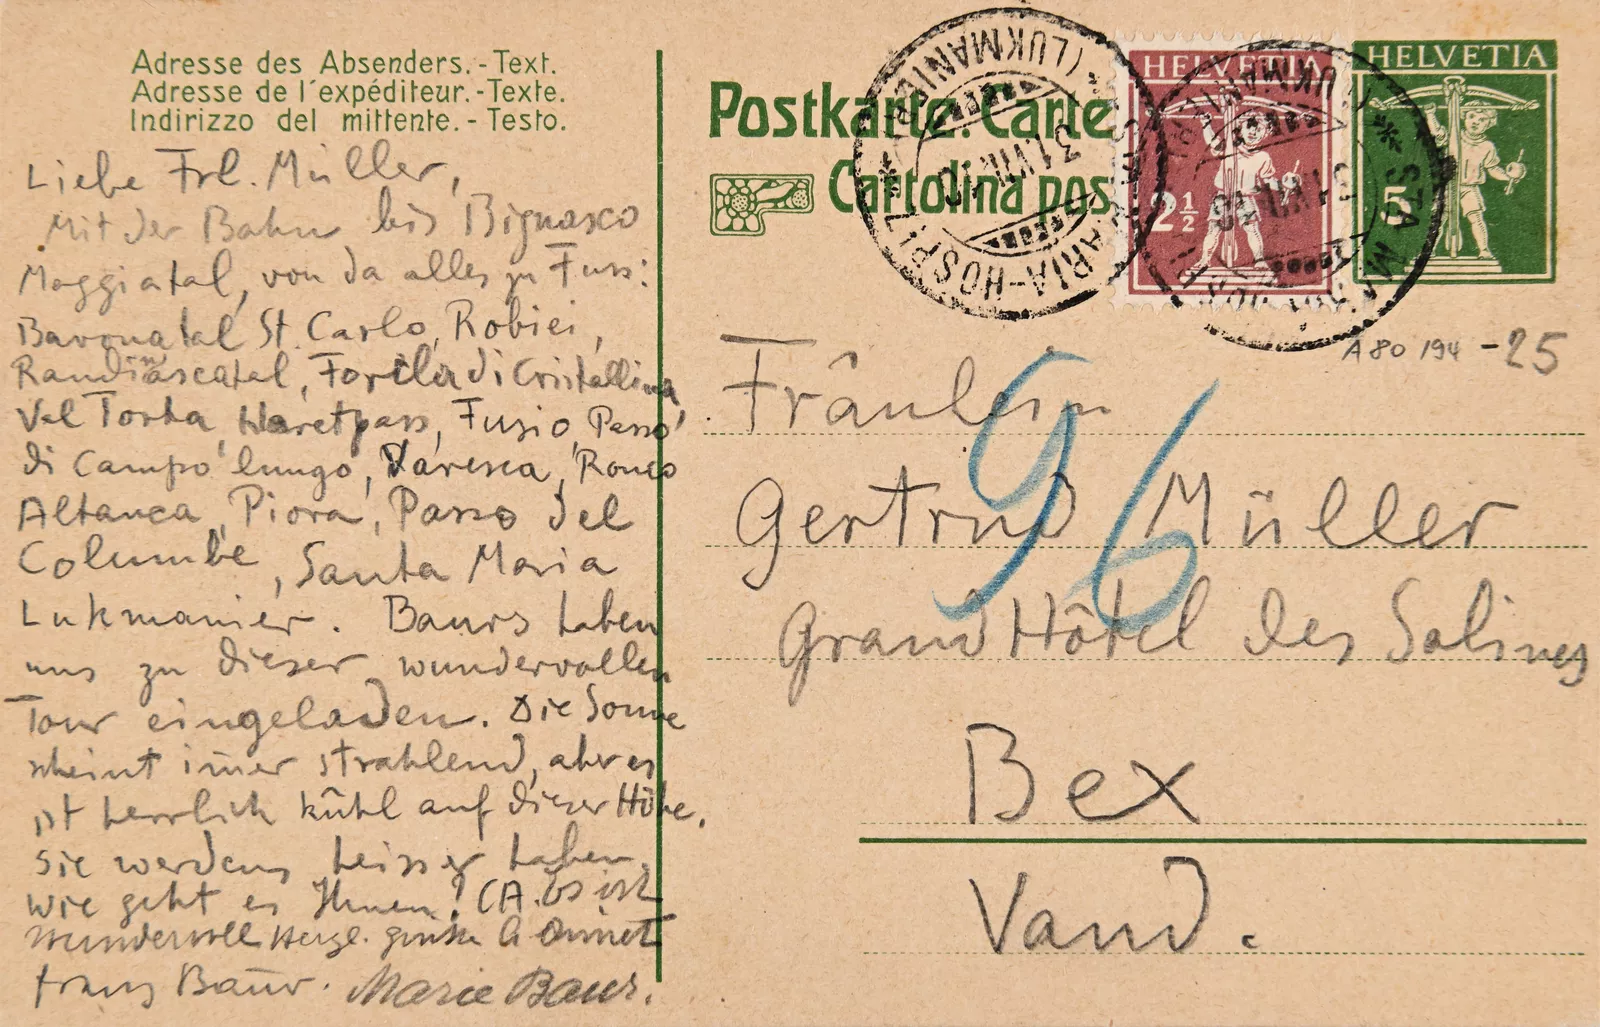 Adresse des Absenders. - Text.
Adresse de l'expéditeur. - Texte.
Indirizzo del mittente. - Testo.
Liebe Frl. Müller,
Mit der Bahn bis Bignasco
Maggiatal, von da alles zu Fuss:
Bavonatal St. Carlo, Robiei,
Forcla di Cristallina,
Val Torta, Fusio, Passo
di Campo lungo, Ronco
Altanca, Piora, Passo del
Columbe, Santa Maria
Lukmanier. Baurs haben
uns zu dieser wundervollen
Tour eingeladen. Die Sonne
scheint im̄er strahlend, aber es
ist herrlich kühl auf dieser Höhe.
Sie werdens heisser haben.
Wie geht es Ihnen? CA. Es ist
wundervoll Herzl. Grüsse
Franz Baur. Marie Baur.
Postkarte. Carte
Cartolina pos
HELVETIA
2½
HELVETIA
5
STA MARIA-HOSPIZ
(LUKMANIER)
31.VII.
STA MARIA-HOSPIZ
(LUKMANIER)
A 80 194 - 25
96
Fräulein
Gertrud Müller
Grand Hôtel des Salines
Bex
Vaud.